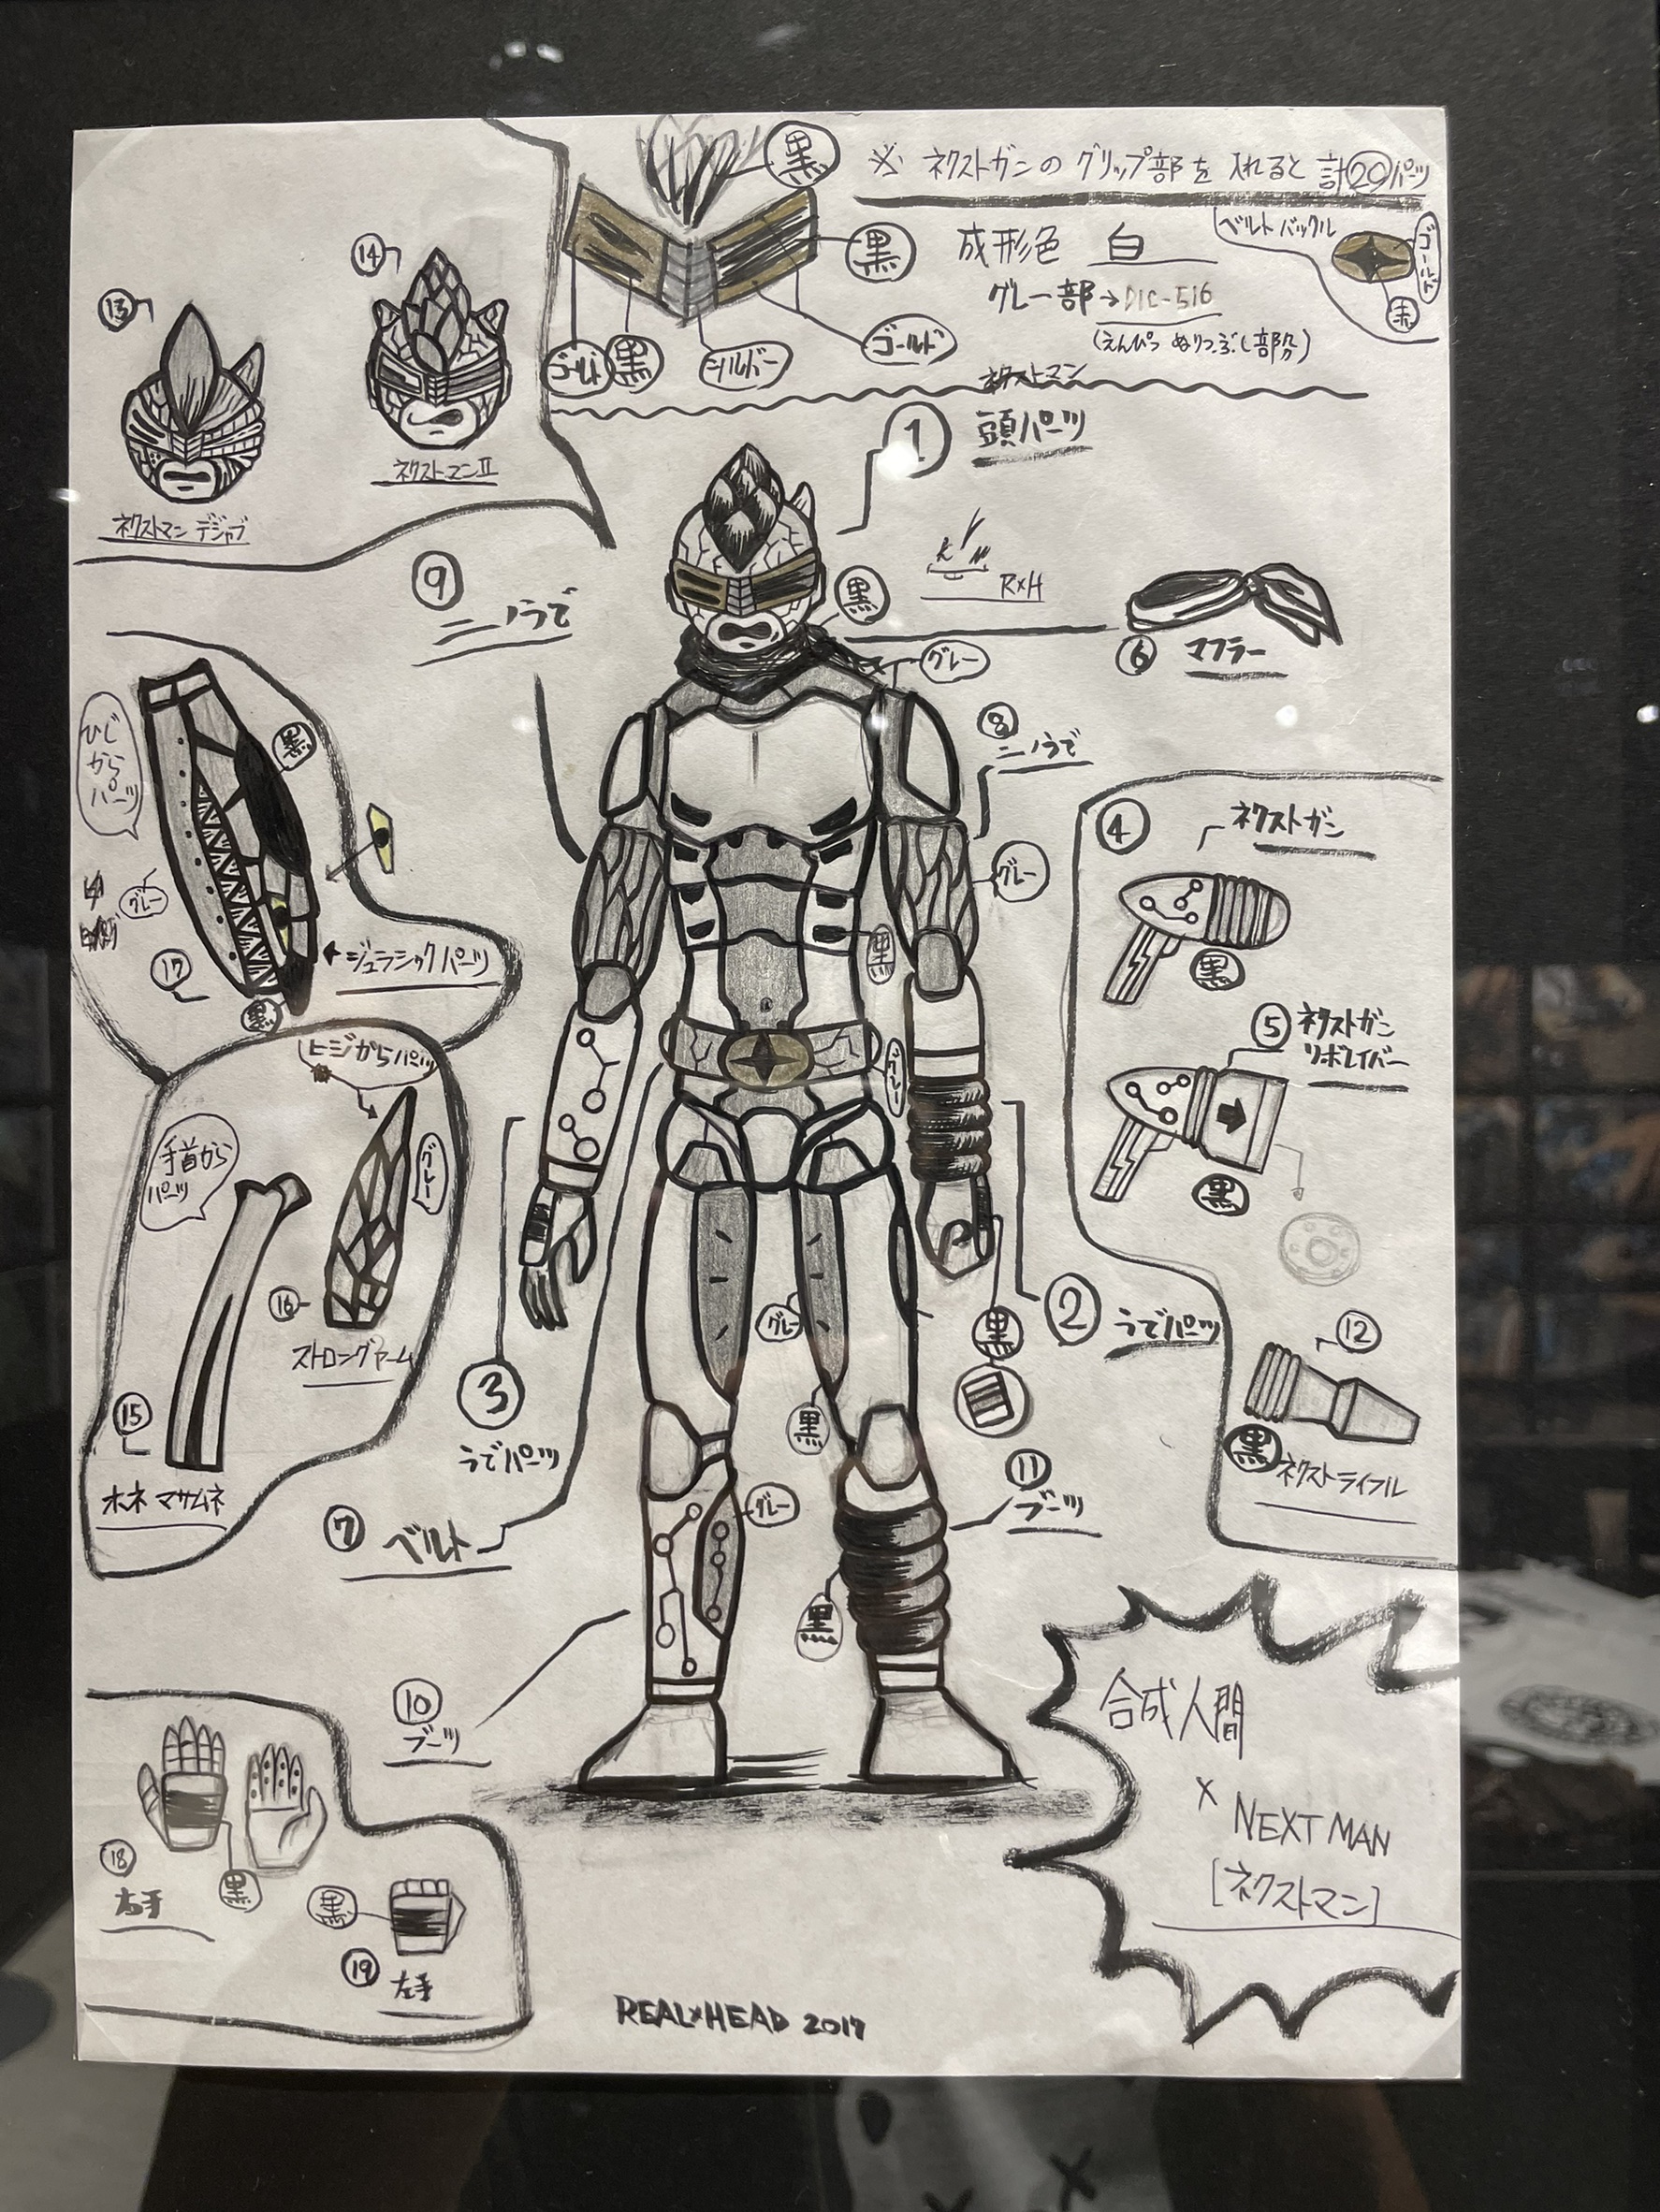 ※ ネクストガンの グリップ部を 入れると 計⑳パーツ
黒
黒
ゴールド
黒
シルバー
ゴールド
成形色 白
グレー部→DIC-516
(えんぴつ ぬりつぶし部分)
ベルトバックル
ゴールド
黒
⑬
ネクストマン デジャブ
⑭
ネクストマンⅡ
ネクストマン
① 頭パーツ
R×H
黒
グレー
⑥ マフラー
⑨
二ノうで
⑧
二ノうで
グレー
黒
グレー
ひじ
から
パーツ
黒
グレー
⑰
ジュラシックパーツ
黒
ヒジからパーツ
手首から
パーツ
グレー
⑯
ストロングアーム
⑮
ホネ マサムネ
④
ネクストガン
黒
⑤ ネクストガン
リボルイバー
黒
⑫
黒
ネクストライフル
② うでパーツ
黒
③
うでパーツ
グレー
黒
⑦ ベルト
⑪
ブーツ
グレー
黒
⑩
ブーツ
⑱
右手
黒
黒
⑲
左手
合成人間
×
NEXT MAN
[ネクストマン]
REAL×HEAD 2017